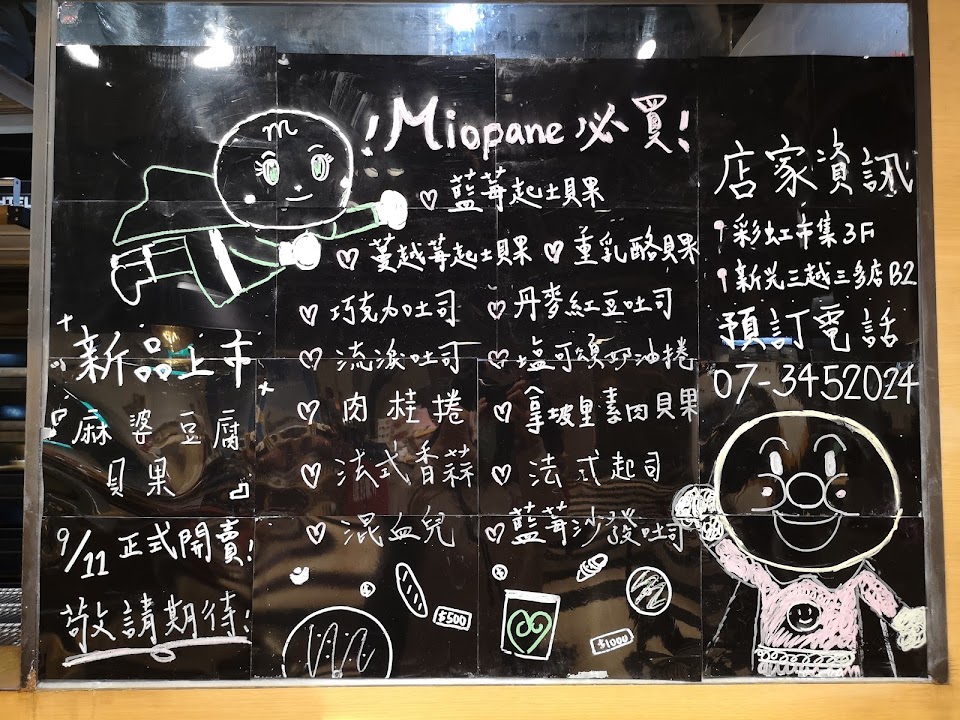 !Miopane 必買!
♡ 藍莓起士貝果
♡ 蔓越莓起士貝果 ♡ 重乳酪貝果
♡ 巧克力吐司 ♡ 丹麥紅豆吐司
♡ 流淚吐司 ♡ 塩可頌奶油捲
♡ 肉桂捲 ♡ 拿坡里素肉貝果
♡ 法式香蒜 ♡ 法式起司
♡ 混血兒 ♡ 藍莓沙發吐司
新品上市
麻婆豆腐
貝果
9/11 正式開賣!
敬請期待!
店家資訊
彩虹市集3F
新光三越三多店B2
預訂電話
07-3452024
m
$500
$1000